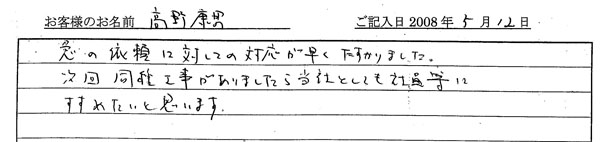 お客様のお名前 高野康男 ご記入日2008年5月12日
急の依頼に対しての対応が早くたすかりました。
次回同種工事がありましたら当社としても社員等に
すすめたいと思います。